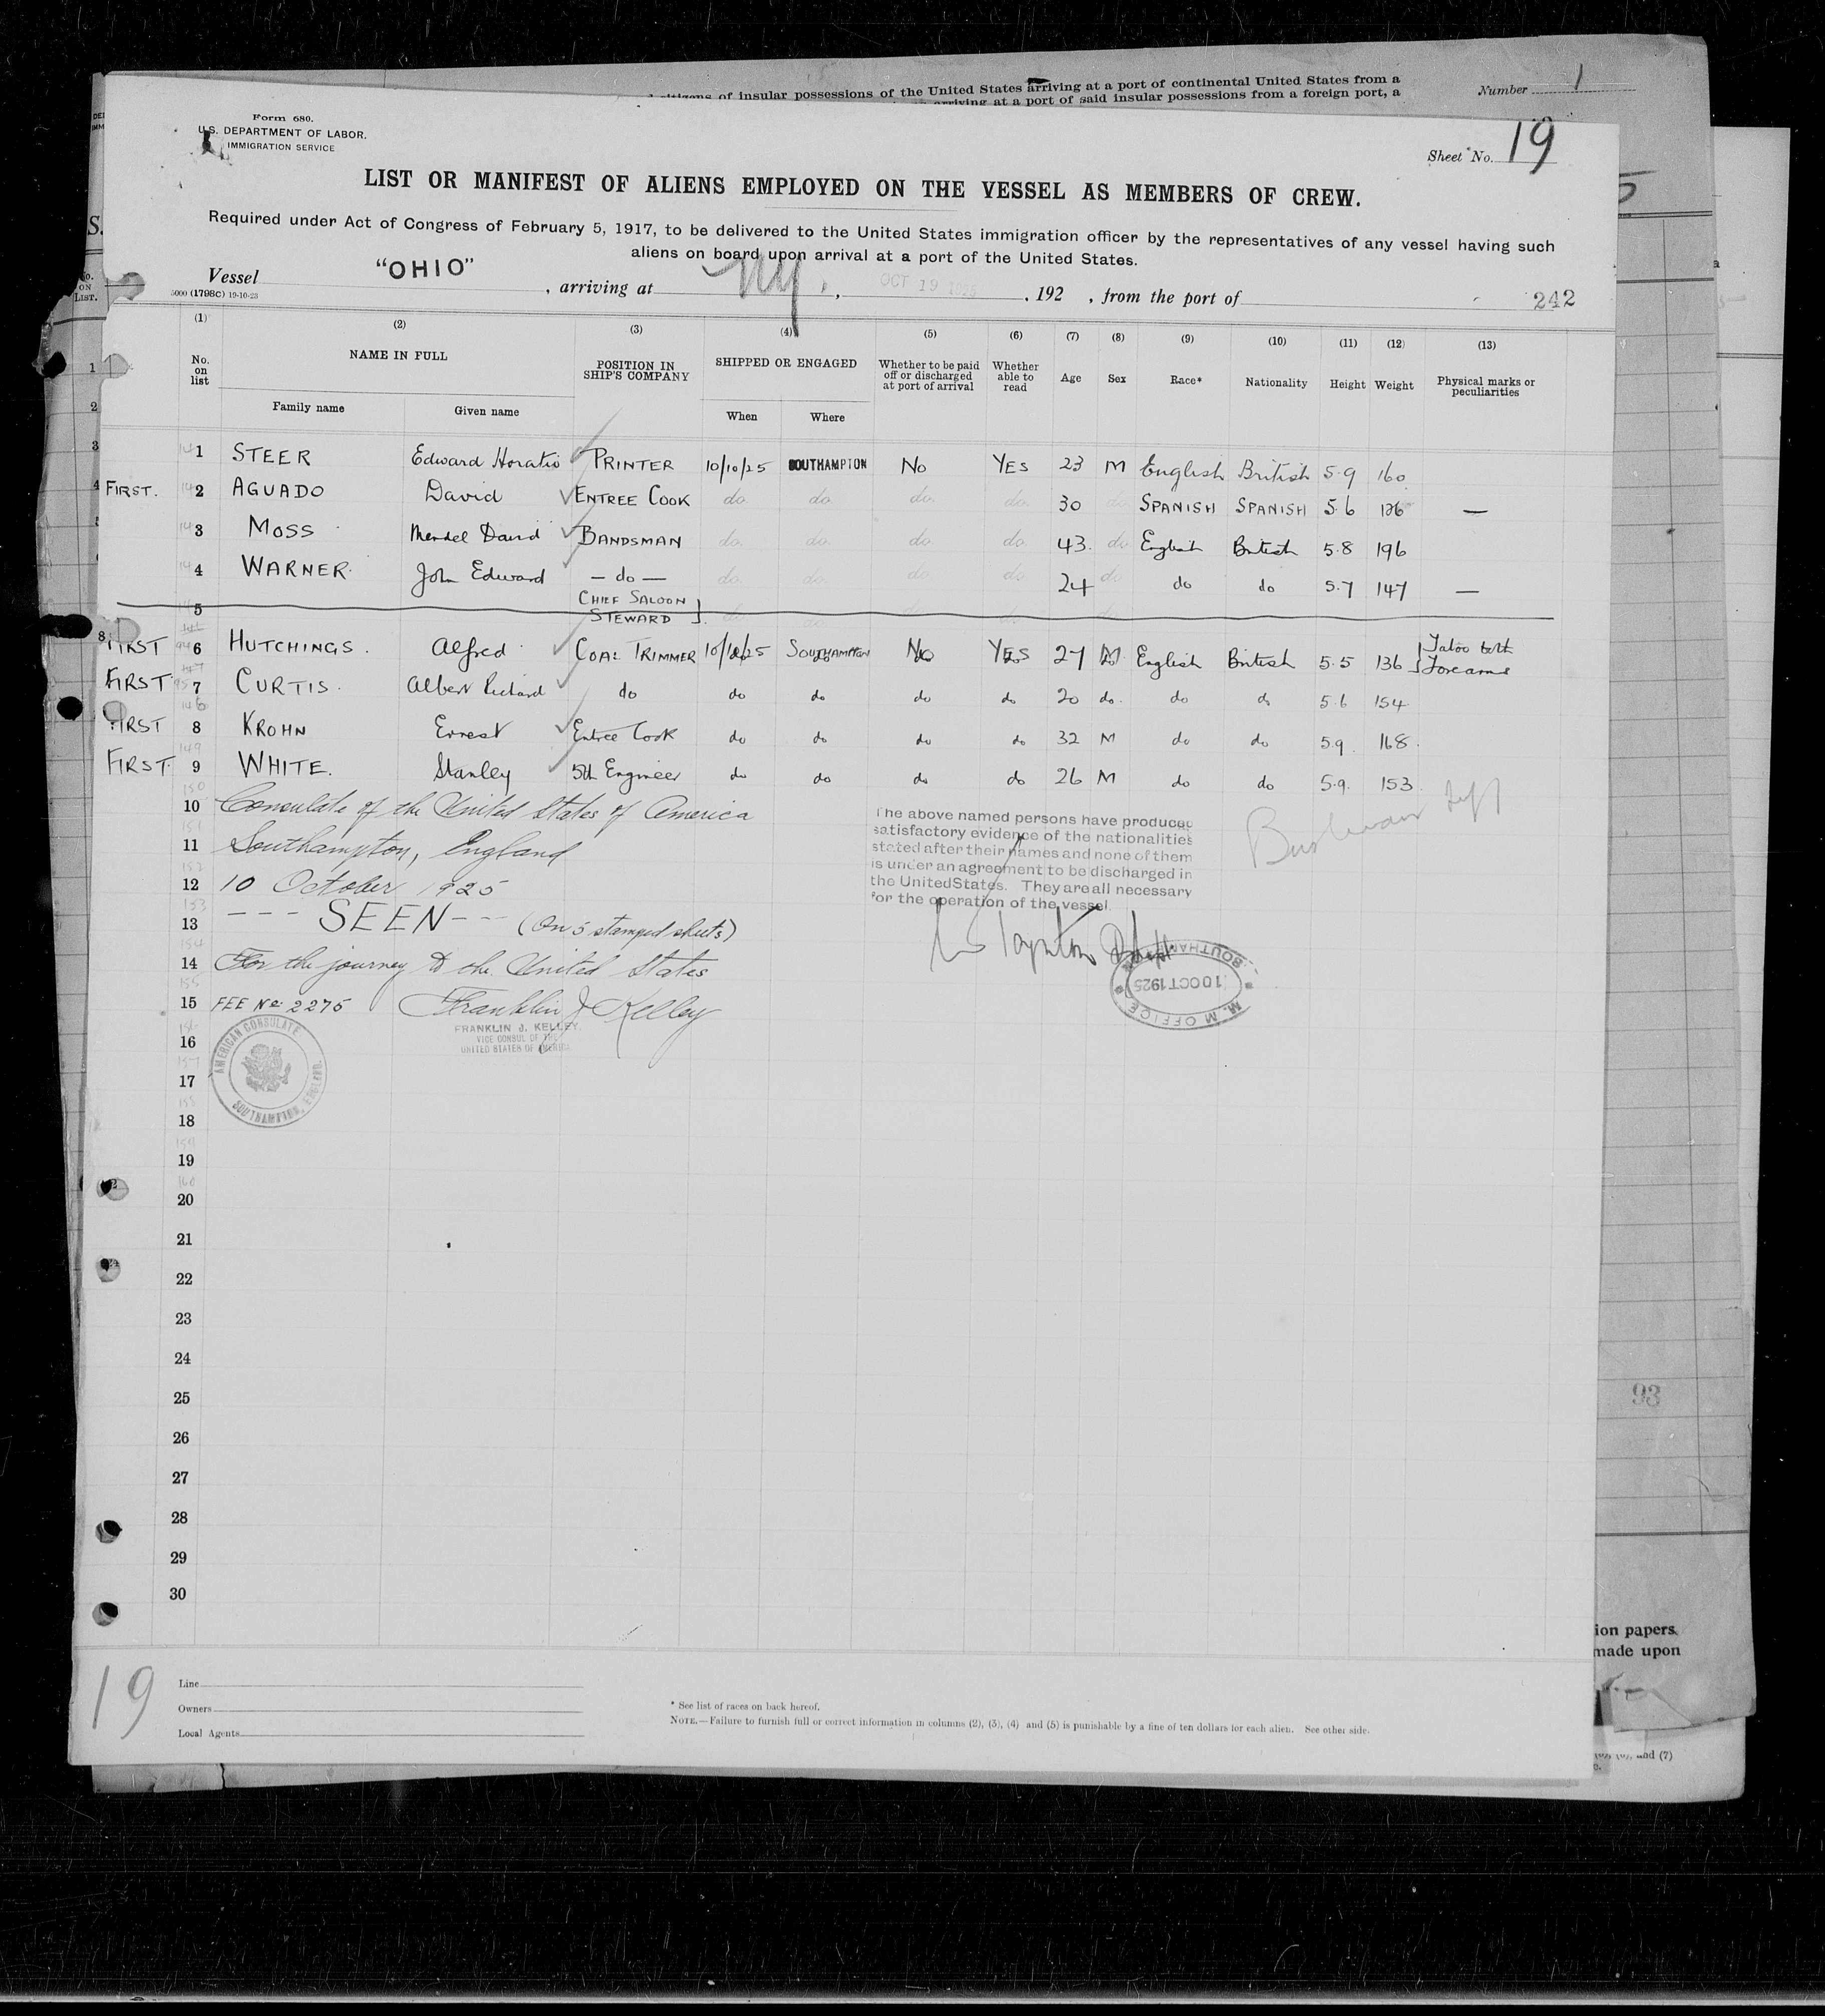 citizens of insular possessions of the United States arriving at a port of continental United States from a
arriving at a port of said insular possessions from a foreign port, a
Number 1
Form 680.
U.S. DEPARTMENT OF LABOR.
IMMIGRATION SERVICE
Sheet No. 19
LIST OR MANIFEST OF ALIENS EMPLOYED ON THE VESSEL AS MEMBERS OF CREW.
Required under Act of Congress of February 5, 1917, to be delivered to the United States immigration officer by the representatives of any vessel having such
aliens on board upon arrival at a port of the United States.
Vessel "OHIO", arriving at N.Y., OCT 19 1925, 192 , from the port of 242
5000 (1798C) 19-10-23
(1) (2) (3) (4) (5) (6) (7) (8) (9) (10) (11) (12) (13)
No. on list NAME IN FULL POSITION IN SHIP'S COMPANY SHIPPED OR ENGAGED Whether to be paid off or discharged at port of arrival Whether able to read Age Sex Race* Nationality Height Weight Physical marks or peculiarities
Family name Given name When Where
1 STEER Edward Horatio PRINTER 10/10/25 SOUTHAMPTON No YES 23 M English British 5.9 160
FIRST. 2 AGUADO David ENTREE COOK do. do. do. do. 30 do SPANISH SPANISH 5.6 126 —
3 MOSS Mendel David BANDSMAN do. do. do. do. 43 do English British 5.8 196
4 WARNER John Edward — do — do. do. do do. 24 do do do 5.7 147 —
5 CHIEF SALOON STEWARD
FIRST 6 HUTCHINGS. Alfred COAL TRIMMER 10/10/25 SOUTHAMPTON No YES 27 M English British 5.5 136 Tatoo both Forearms
FIRST 7 CURTIS. Albert Richard do do do do do 20 do. do do 5.6 154
FIRST 8 KROHN Ernest Entree Cook do do do do 32 M do do 5.9. 168.
FIRST 9 WHITE. Stanley 5th Engineer do do do do 26 M do do 5.9. 153
10 Consulate of the United States of America
11 Southampton, England
12 10 October 1925
13 --- SEEN --- (On 5 stamped sheets)
14 For the journey to the United States
15 FEE No 2275 Franklin J Kelley
FRANKLIN J. KELLEY
VICE CONSUL OF THE
UNITED STATES OF AMERICA
AMERICAN CONSULATE
SOUTHAMPTON, ENGLAND.
The above named persons have produced
satisfactory evidence of the nationalities
stated after their names and none of them
is under an agreement to be discharged in
the United States. They are all necessary
for the operation of the vessel
SOUTHAMPTON
10 OCT 1925
M. M. OFFICE
16
17
18
19
20
21
22
23
24
25
26
27
28
29
30
93
ion papers
made upon
and (7)
19
Line
Owners
Local Agents
* See list of races on back hereof.
NOTE.—Failure to furnish full or correct information in columns (2), (3), (4) and (5) is punishable by a fine of ten dollars for each alien. See other side.